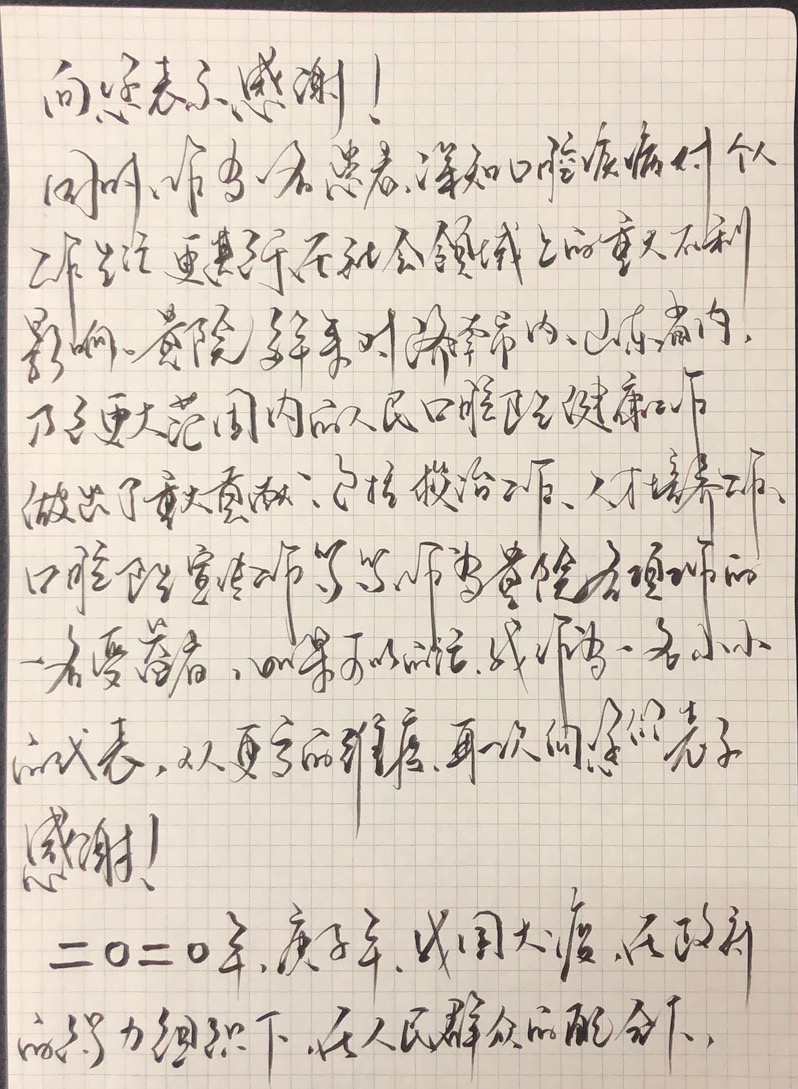 向您表示感谢！
同时、作为一名患者、深知口腔疾病对个人
工作生活更甚于在社会领域上的重大不利
影响、贵院多年来对济南市内、山东省内、
乃至更大范围内的人民口腔卫生健康工作
做出了重大贡献：包括救治工作、人才培养工作、
口腔卫生宣传工作等等、作为贵院各项工作的
一名受益者、如果可以的话、我作为一名小小
的代表、从更高的维度、再一次向您们表示
感谢！
二〇二〇年、庚子年、我国大疫、在政府
的努力组织下、在人民群众的配合下、